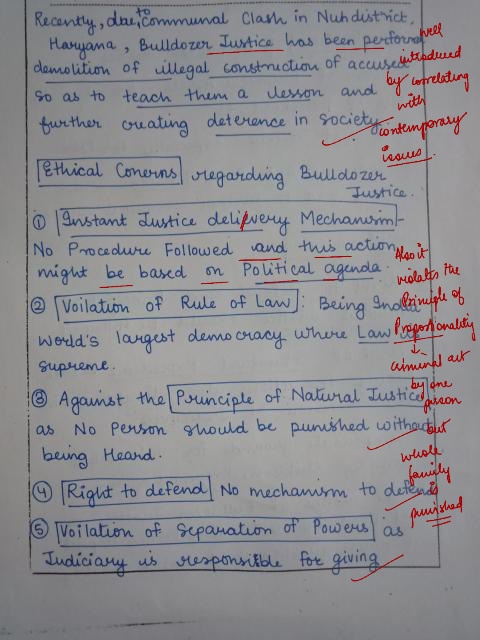 Recently, due to communal Clash in Nuh district,
Haryana, Bulldozer Justice has been perform
demolition of illegal construction of accused
so as to teach them a lesson and
further creating deterence in society.
well
introduced
by correlating
with
contemporary
issues.
Ethical Conerns regarding Bulldozer
Justice.
① Instant Justice delivery Mechanism -
No Procedure Followed and this action
might be based on Political agenda.
② Voilation of Rule of Law : Being India
World's largest democracy where Law is
supreme.
Also it
violates the
Principle of
Proportionality
↓
criminal act
by one
person
but
whole
family
is
punished
③ Against the Principle of Natural Justice
as No Person should be punished without
being Heard.
④ Right to defend No mechanism to defend
⑤ Voilation of Separation of Powers as
Judiciary is responsible for giving